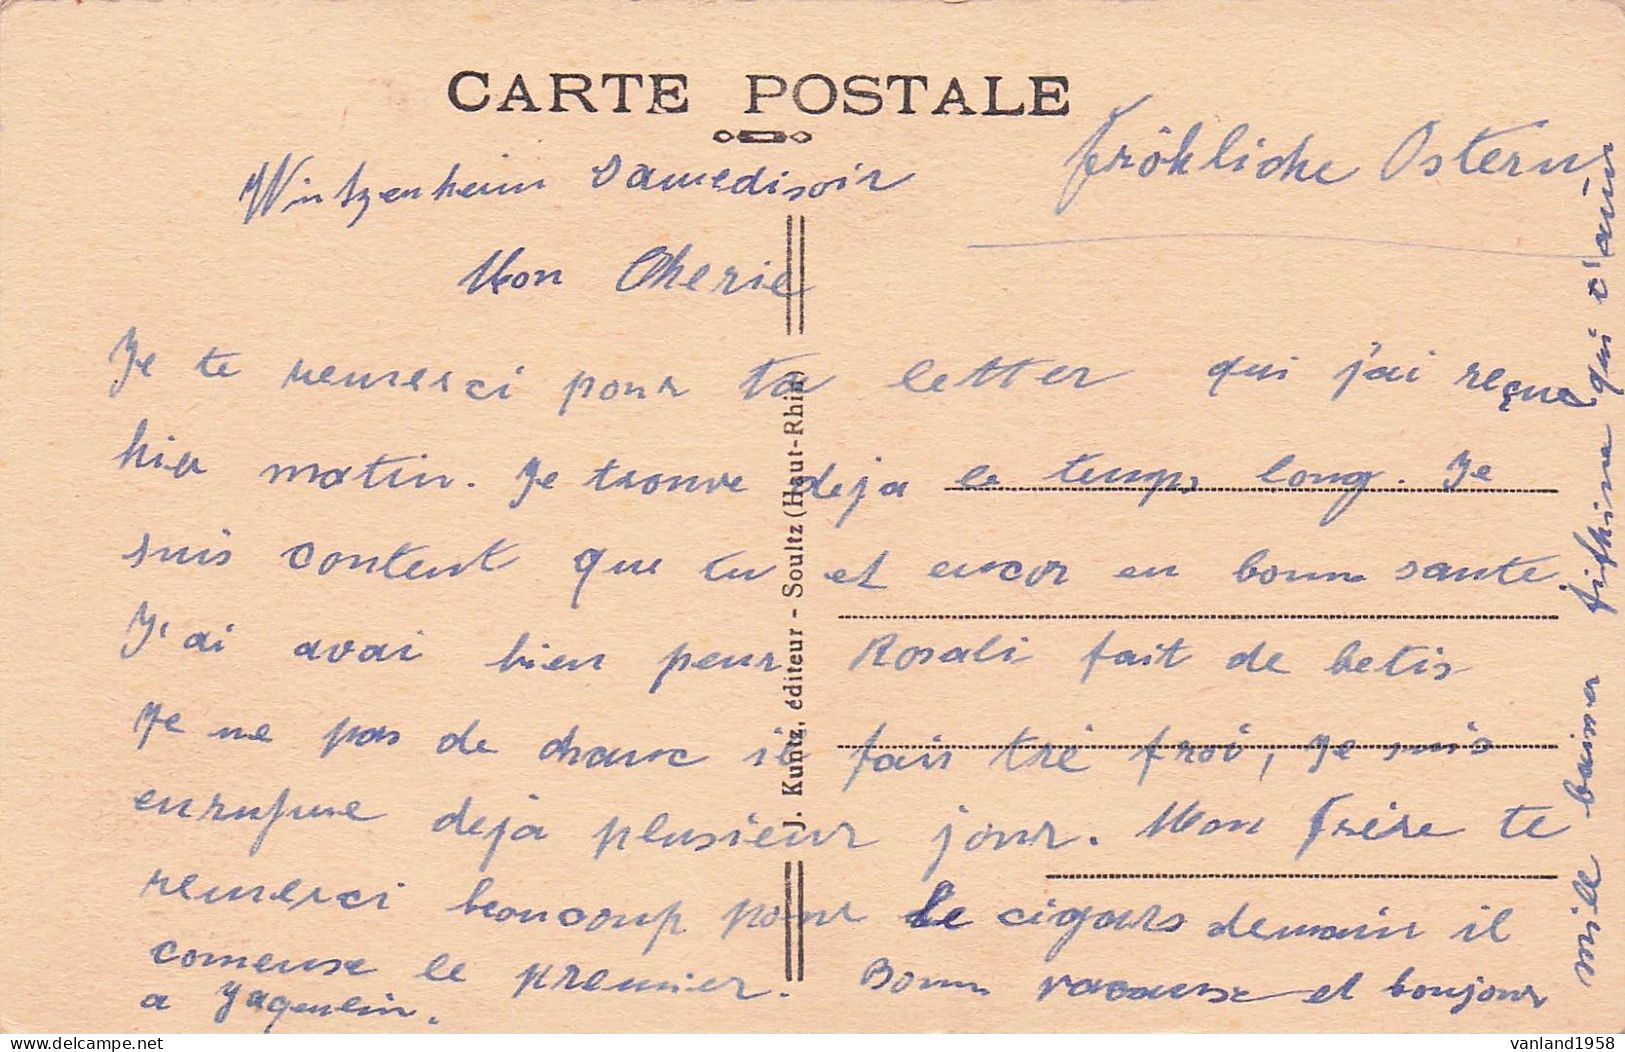 CARTE POSTALE
Fröhliche Ostern
Wintzenheim Samedisoir
Mon Cherie
Je te remerci pour ta letter qui j'ai reçue
hier matin. Je trouve deja le temps long. Je
suis content que tu et encor en bonn sante
J'ai avai bien peur Rosali fait de betis
Je ne pas de chanc il fais tre froi, je suis
enrufme deja plusieur jour. Mon Frère te
remerci beaucoup pour le cigars demain il
comense le premier. Bonn vacanse et boujour
a Jaqeulin.
mille baisser qui t'aim
J. Kuntz, éditeur - Soultz (Haut-Rhin)
vanland1958